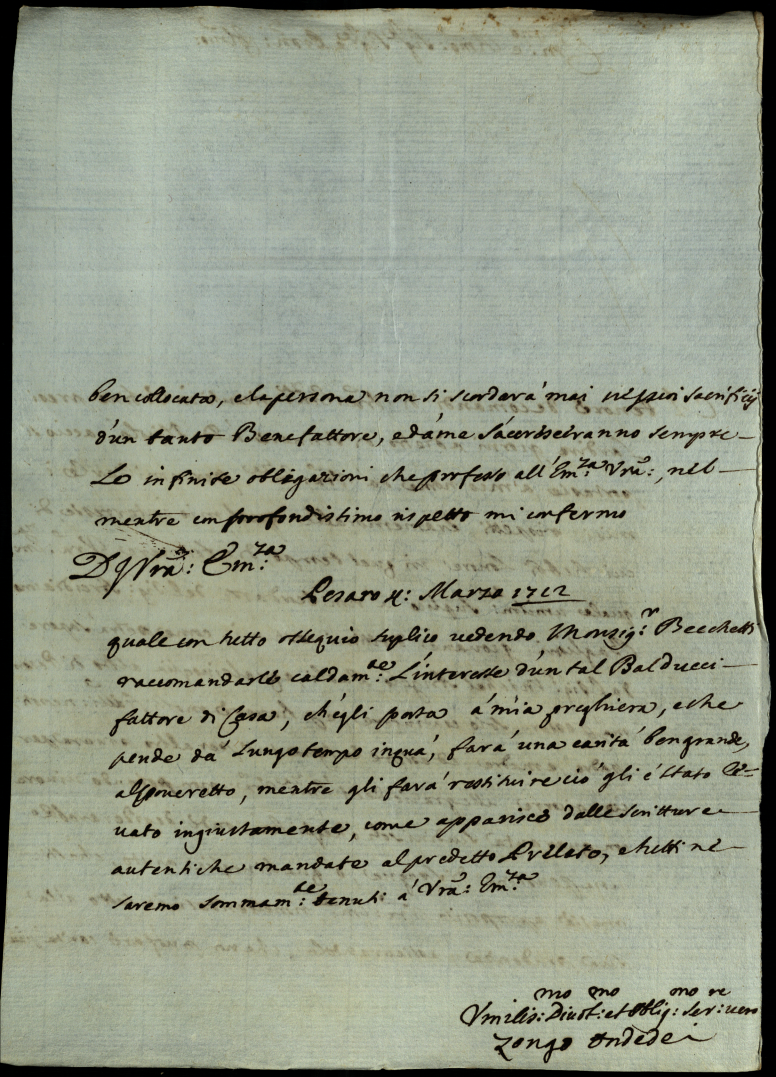 ben collocata, e la persona non si scordarà mai ne suoi sacrificij
d'un tanto Benefattore, ed à me s'accresceranno sempre
Le infinite obligazioni che professo all'Em:za Vra:, nel
mentre con profondissimo rispetto mi confermo
D V Vra: Em:za
Pesaro 4: Marzo 1712
quale con tutto ossequio suplico vedendo Monsig:r Becchetti
raccomandarle caldam:te L'interesse d'un tal Balducci
fattore di Casa, ch'egli porta à mia preghiera, e che
pende dà Lungo tempo in quà, farà una carità ben grande,
al poveretto, mentre gli farà restituire ciò gli è stato le-
vato ingiustamente, come apparisce dalle scritture
autentiche mandate al predetto Prelato, e tutti ne
saremo sommam:te tenuti à Vra: Em:za
Vmilis:mo Divot:mo et Oblig:mo Ser:re vero
Zongo Ondedei